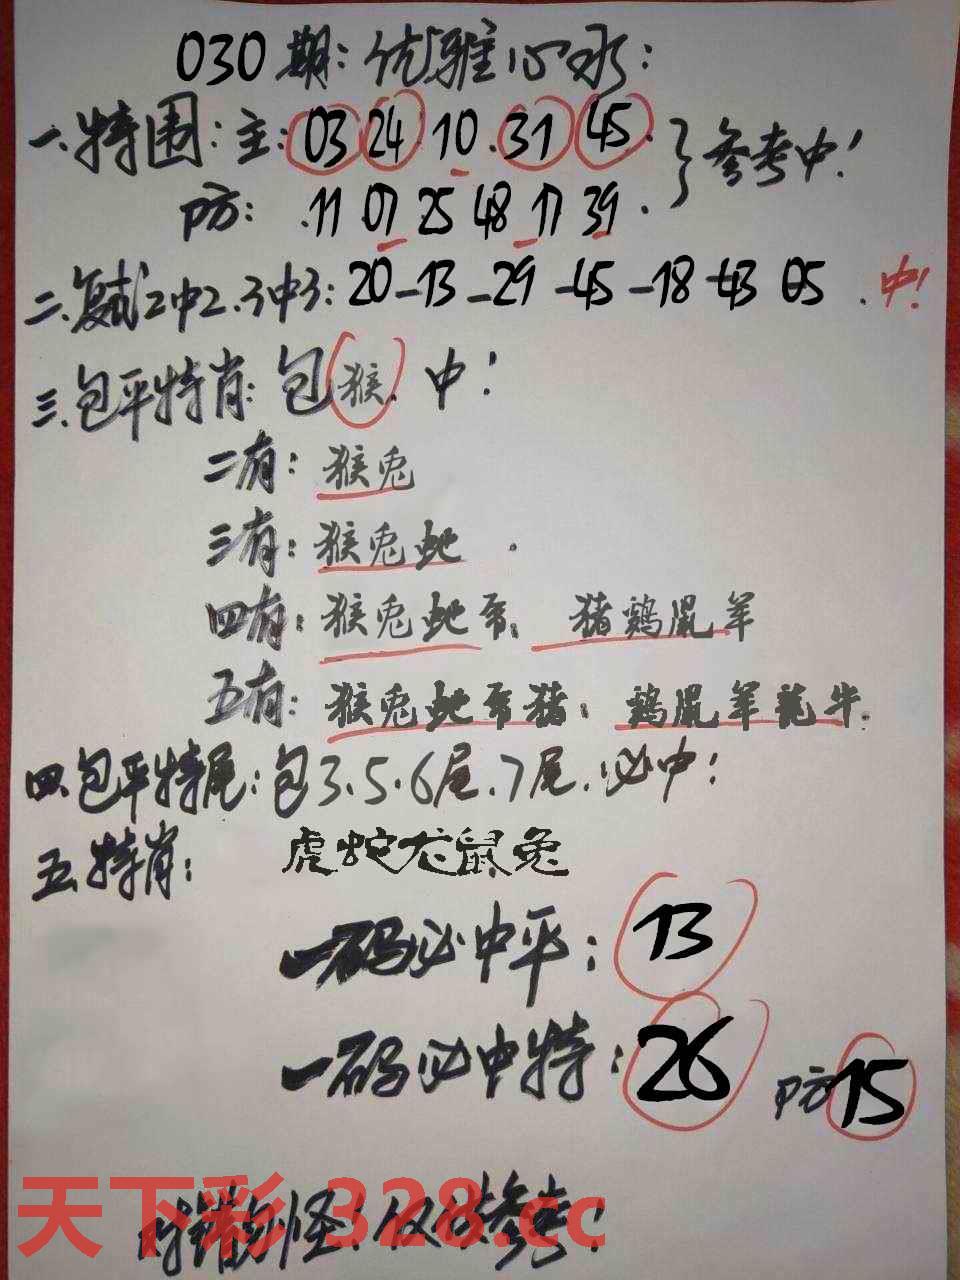 030期:优雅心水:
一.特围:主:03 24 10.31 45.
防: .11 07 25 48 17 39.
}参考中!
二.复式2中2.3中3:20-13-29-45-18-43 05.中!
三.包平特肖:包猴.中!
二有:猴兔
三有:猴兔蛇.
四有:猴兔蛇 猪鸡鼠羊
五有:猴兔蛇 猪:鸡鼠羊龙牛.
四.包平特尾:包3.5.6尾.7尾.必中!
五.特肖: 虎蛇龙鼠兔
一码必中平:13
一码必中特:26 防15
对错勿怪!仅供参考!
天下彩 328.cc